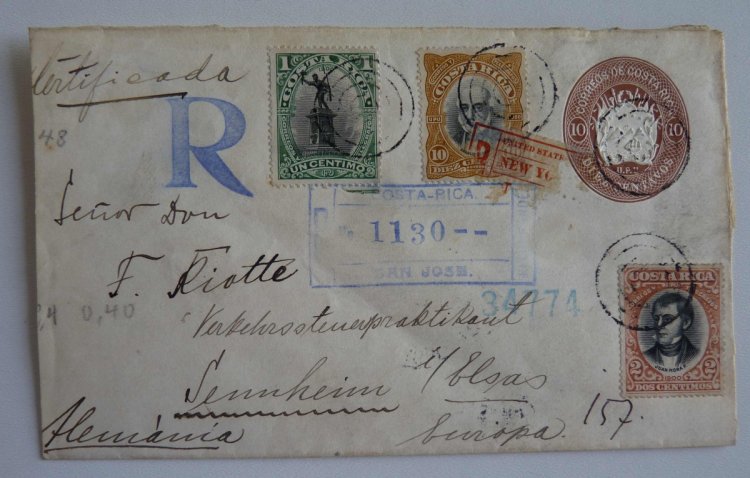 Certificada
48
R
1 COSTA RICA 1
UN CENTIMO
COSTA RICA
10 DIEZ CENTIMOS
CORREOS DE COSTARICA
10 10
U.P.U.
DIEZ CENTAVOS
UNITED STATE
NEW YO
COSTA-RICA.
R
1130--
SAN JOSE.
34774
Señor Don
F. Riotte
0,40
Verkehrssteuerpraktikant
Sennheim i/Elsas
Alemánia
Europa.
157.
COSTA RICA
JUAN MORA F.
1900
2 DOS CENTIMOS 2